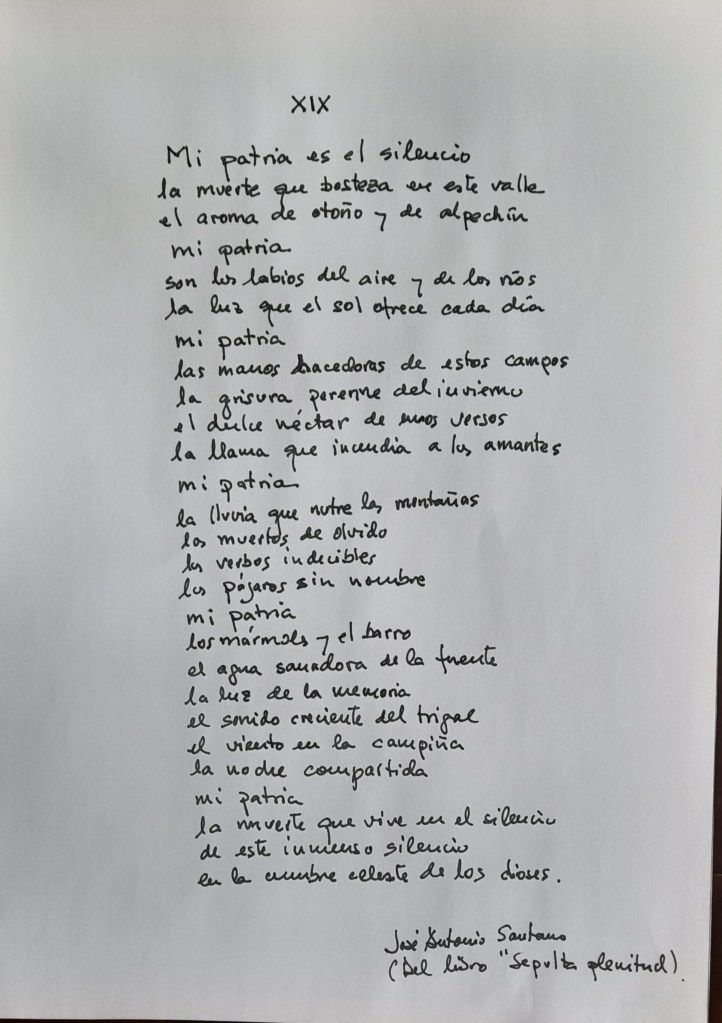 XIX
Mi patria es el silencio
la muerte que bosteza en este valle
el aroma de otoño y de alpechín
mi patria
son los labios del aire y de los ríos
la luz que el sol ofrece cada día
mi patria
las manos hacedoras de estos campos
la grisura perenne del invierno
el dulce néctar de unos versos
la llama que incendia a los amantes
mi patria
la lluvia que nutre las montañas
los muertos de olvido
los verbos indecibles
los pájaros sin nombre
mi patria
los mármoles y el barro
el agua sanadora de la fuente
la luz de la memoria
el sonido creciente del trigal
el viento en la campiña
la noche compartida
mi patria
la muerte que vive en el silencio
de este inmenso silencio
en la cumbre celeste de los dioses.
José Antonio Santano
(Del libro "Sepulta plenitud).